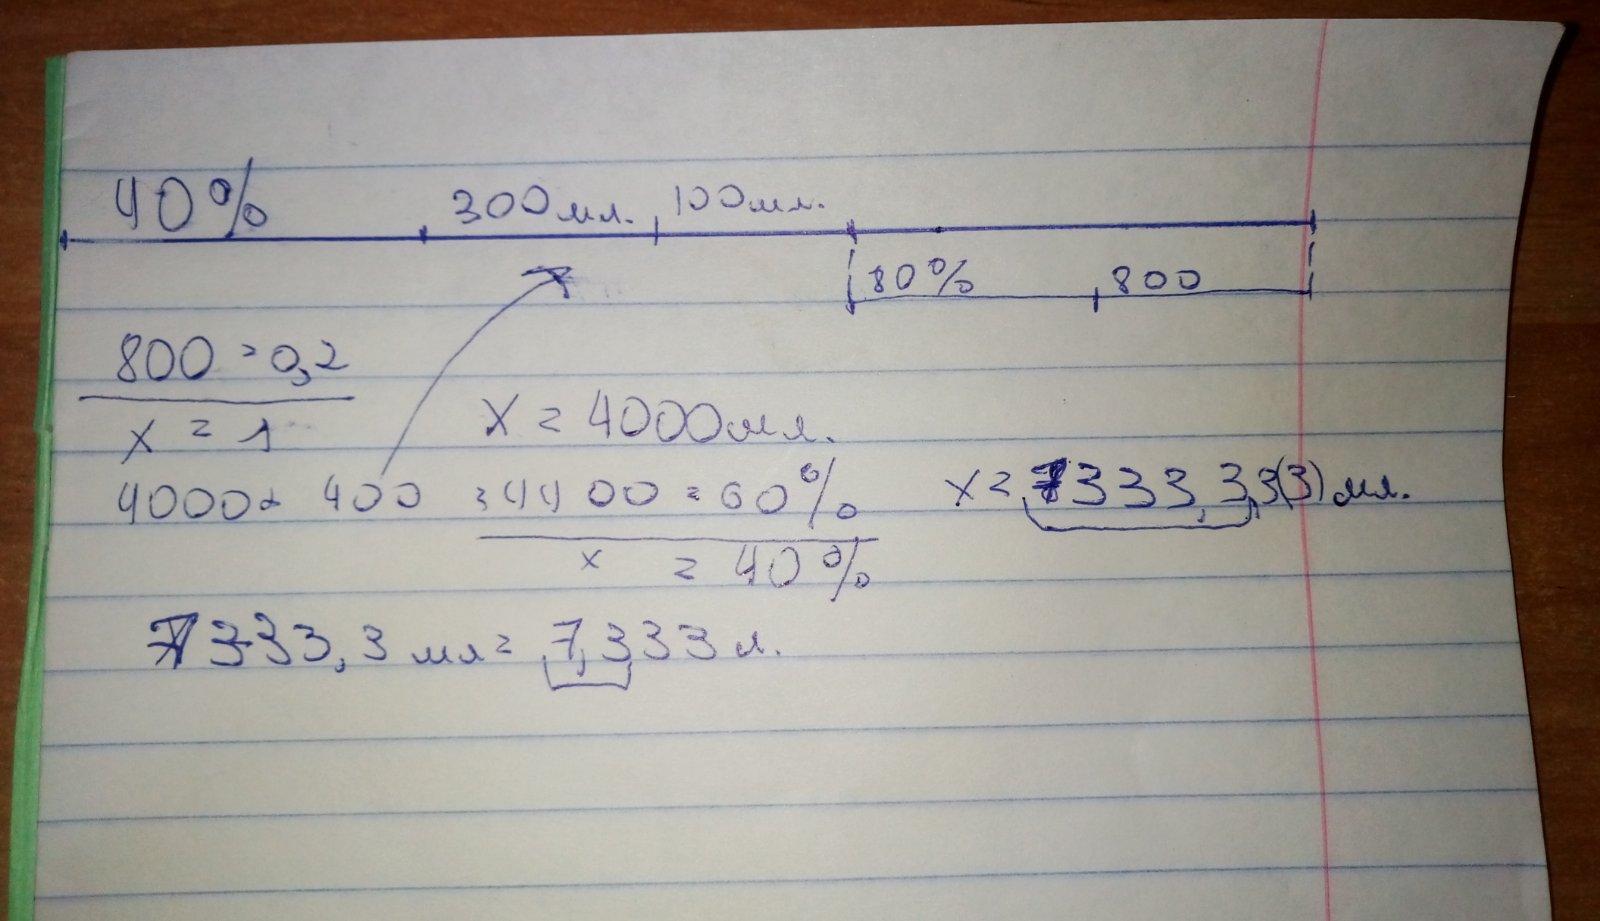 40% 300мл. 100мл.
80% 800
800 = 0,2
x = 1
x = 4000мл.
4000+ 400 = 4400 = 60%
x = 40%
x = 7333,3,3(3) мл.
7333,3 мл = 7,333 л.